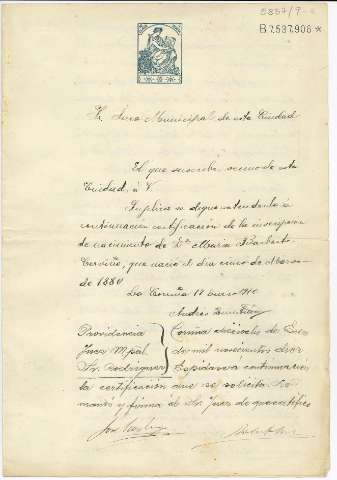 5857/9-2
B.7.537.908 *
Sr. Juez Municipal de esta Ciudad
El que suscribe vecino de esta
Ciudad, á V.
Suplica se digne extenderle á
continuación certificación de la inscripción
de nacimiento de Dª María Barbeito
Cerviño, que nació el día cinco de Marzo
de 1880
La Coruña 17 Enero 1910
Andrés
Providencia
Juez Mpal.
Sr. Rodríguez
Coruña diecisiete de
de mil novecientos diez
Expídase a continuación
la certificación que se solicita. Lo
mandó y firma el Sr. Juez de que certifico